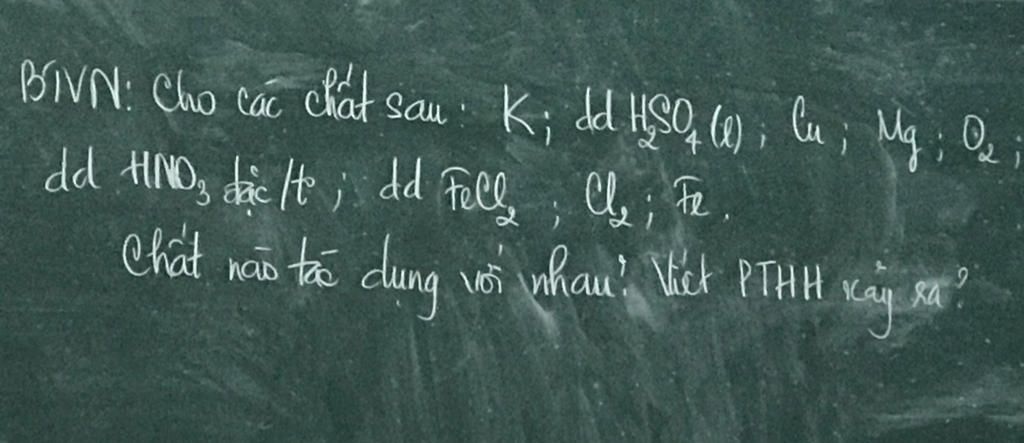 BTVN: Cho các chất sau: K; dd H₂SO₄ (l); Cu; Mg; O₂;
dd HNO₃ đặc/t°; dd FeCl₂; Cl₂; Fe.
Chất nào tác dụng với nhau? Viết PTHH xảy ra?